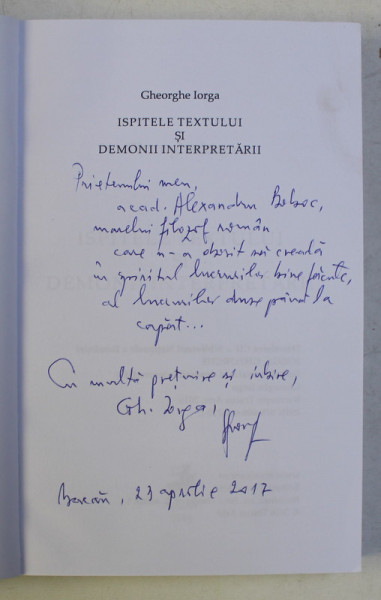 Gheorghe Iorga
ISPITELE TEXTULUI
ȘI
DEMONII INTERPRETĂRII
Prietenului meu,
acad. Alexandru Boboc,
marelui filozof român
care n-a obosit să creadă
în spiritul lucrurilor bine făcute,
al lucrurilor duse până la
capăt...
Cu multă prețuire și iubire,
Gh. Iorga,
Bacău, 23 aprilie 2017